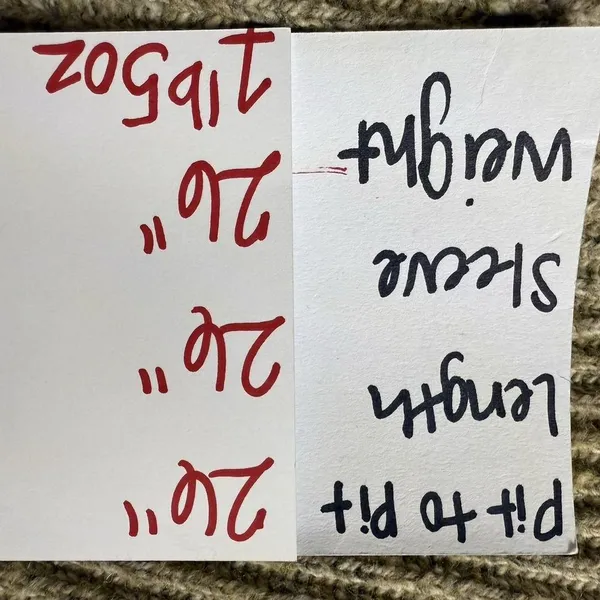 Pit to Pit 26"
Length 26"
Sleeve 26"
Weight 1lb5oz